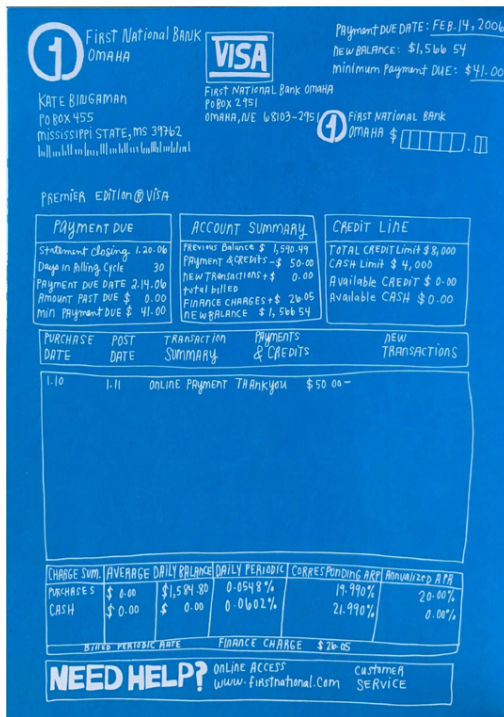 1 FIRST NATIONAL BANK
OMAHA
VISA
PAYMENT DUE DATE: FEB. 14, 2006
NEW BALANCE: $1,566 54
minimum Payment DUE: $41.00
KATE BINGAMAN
PO BOX 455
mississippi STATE, MS 39762
FIRST NATIONAL BANK OMAHA
PO BOX 2951
OMAHA, NE 68103-2951
1 FIRST NATIONAL BANK
OMAHA $
PREMIER EDITION® VISA
PAYMENT DUE
Statement closing 1.20.06
Days in Billing Cycle 30
PAYMENT DUE DATE 2.14.06
AMOUNT PAST DUE $ 0.00
MIN PAYMENT DUE $ 41.00
ACCOUNT SUMMARY
PREVIOUS Balance $ 1,590.49
PAYMENT & CREDITS -$ 50.00
NEW TRANSACTIONS +$ 0.00
total billed
FINANCE CHARGES +$ 26.05
NEW BALANCE $1,566 54
CREDIT LINE
TOTAL CREDIT Limit $8,000
CASH Limit $ 4,000
Available CREDIT $ 0.00
Available CASH $ 0.00
PURCHASE DATE POST DATE TRANSACTION SUMMARY PAYMENTS & CREDITS NEW TRANSACTIONS
1.10 1.11 ONLINE PAYMENT THANKYOU $50 00-
CHARGE SUM. AVERAGE DAILY BALANCE DAILY PERIODIC CORRESPONDING ARP Annualized APR
PURCHASES $ 0.00 $1,584.80 0.0548% 19.990% 20.00%
CASH $ 0.00 $ 0.00 0.0602% 21.990% 0.00%
BILLED PERIODIC RATE FINANCE CHARGE $ 26.05
NEED HELP? ONLINE ACCESS
www.firstnational.com
CUSTOMER
SERVICE